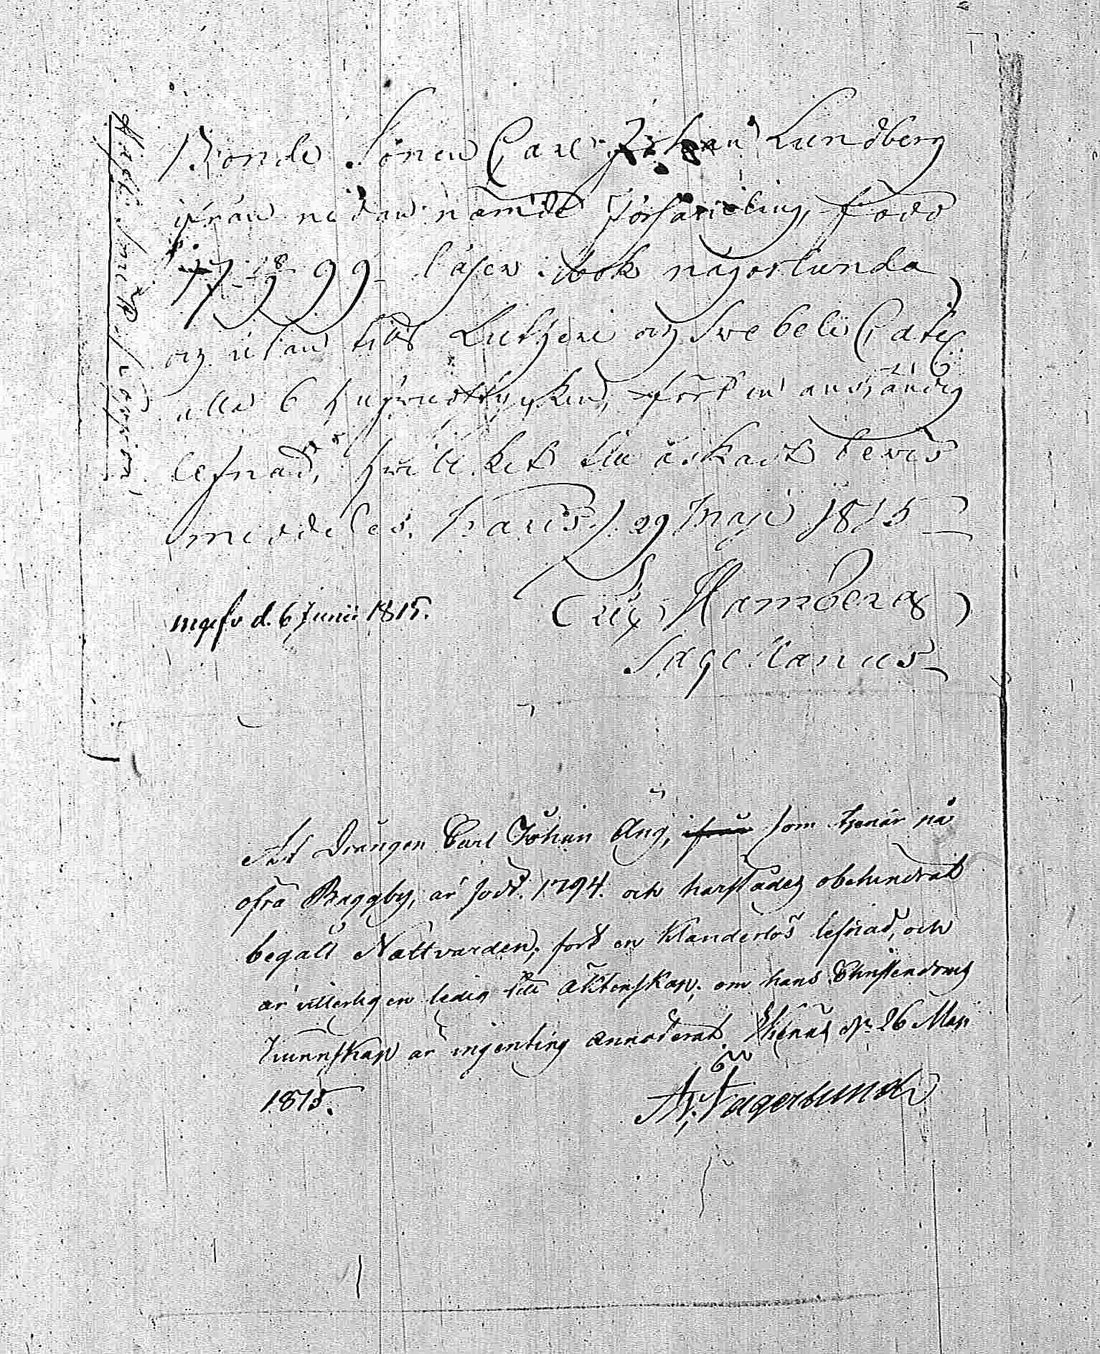 Bonde Sonen Carl Johan Lundberg
ifrån nedan nämde församling, född
17 18/9 99 läser i bok någorlunda
och utan till Lutheri och Swebelii Catec.
alla 6 hufwudstycken, fört en anständig
lefnad, hwilcket till äskadt bewis
meddeles. Karis d. 29 Maji 1815
Eric Hamberg
Sacellanus
d. 6 Junii 1815.
At Drängen Carl Johan Aug, som tjenar på
ofra Baggby, är född 1794. och härstädes obehindrat
begått Nattvarden, fört en klanderlös lefnad, och
är vitterligen ledig till äktenskap; om hans Christendoms
kunnskap är ingenting annoterat. Ekenäs d. 26 Maji
1815.
Fagerlund